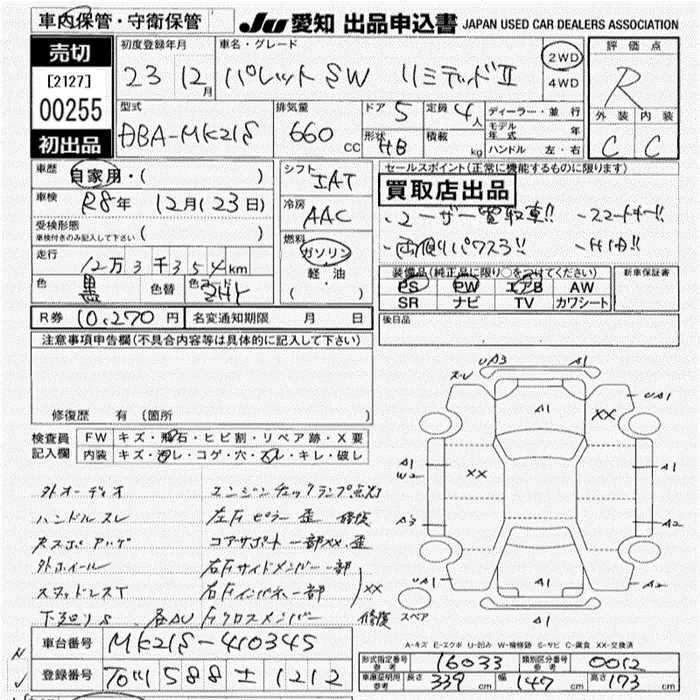 車内保管・守衛保管
JU 愛知 出品申込書 JAPAN USED CAR DEALERS ASSOCIATION
売切
[2127]
00255
初出品
初度登録年月
23 12月
車名・グレード
パレットSW リミテッドII
2WD
4WD
評価点
R
外装 内装
C C
型式
DBA-MK21S
排気量
660 cc
ドア 5
定員 4人
形状 HB
積載 kg
ディーラー・並行
モデル年式 年
ハンドル 左・右
車歴 自家用・( )
車検 R8年 12月(23日)
受検形態
車検付きのみ記入して下さい ( )
走行 12万3千354km
色 黒 色替
シフト IAT
冷房 AAC
燃料 ガソリン
軽・油
( )
セールスポイント(正常に機能するものに限ります)
買取店出品
・ユーザー買取車!! ・スマートキー!!
・両側パワスラ!! ・HID!!
装備品(純正品に限り○をつけてください) 新車保証書
PS PW エアB AW
SR ナビ TV カワシート
R券 10,270円 名変通知期限 月 日
後日品
注意事項申告欄(不具合内容等は具体的に記入して下さい)
修復歴 有 (箇所 )
検査員記入欄
FW キズ・飛石・ヒビ割・リペア跡・X要
内装 キズ・汚レ・コゲ・穴・スレ・キレ・破レ
外オーディオ エンジンチェックランプ点灯
ハンドルスレ 左右ピラー歪 修復
コアサポート一部XX・歪
外ホイール 右左サイドメンバー一部
スタッドレスT 右左インパネ一部 XX
下廻りS 各AU Fクロスメンバー 修復
スレ UA3 A1
UA1
A1 XX
A1 W2 XX
A3 A2
UA1 A1 A2
A1
スペア
A-キズ E-エクボ U-凹み W-補修跡 S-サビ C-腐食 XX-交換済
車台番号 MK21S-410345
登録番号 588 1212
型式指定番号 参考 16033 類別区分番号 参考 0012
車庫証明用 参考 長さ 339cm 幅 147cm 高さ 173cm